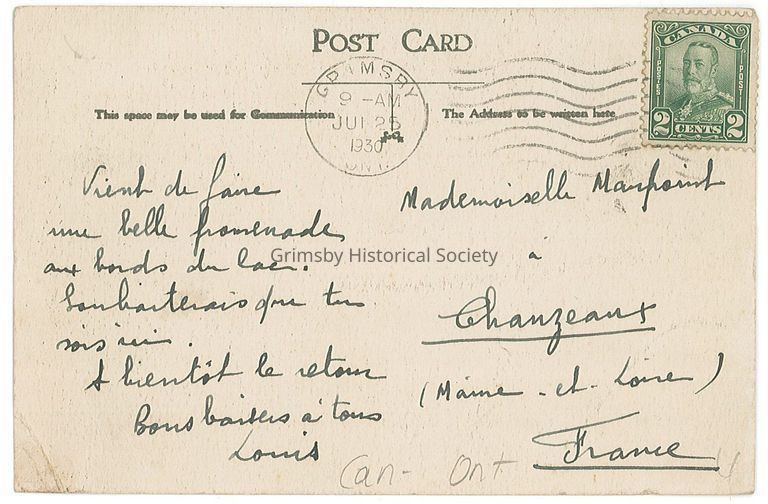 POST CARD
CANADA
POSTES POSTAGE
2 CENTS 2
GRIMSBY
9 -AM
JUL 25
1930
ONT.
This space may be used for Communication
The Address to be written here
Vient de faire
une belle promenade
aux bords du lac.
Souhaiterais que tu
sois ici.
A bientôt le retour
Bons baisers à tous
Louis
Mademoiselle
à
Chanzeaux
(Maine - et - Loire)
France
Grimsby Historical Society
Can - Ont